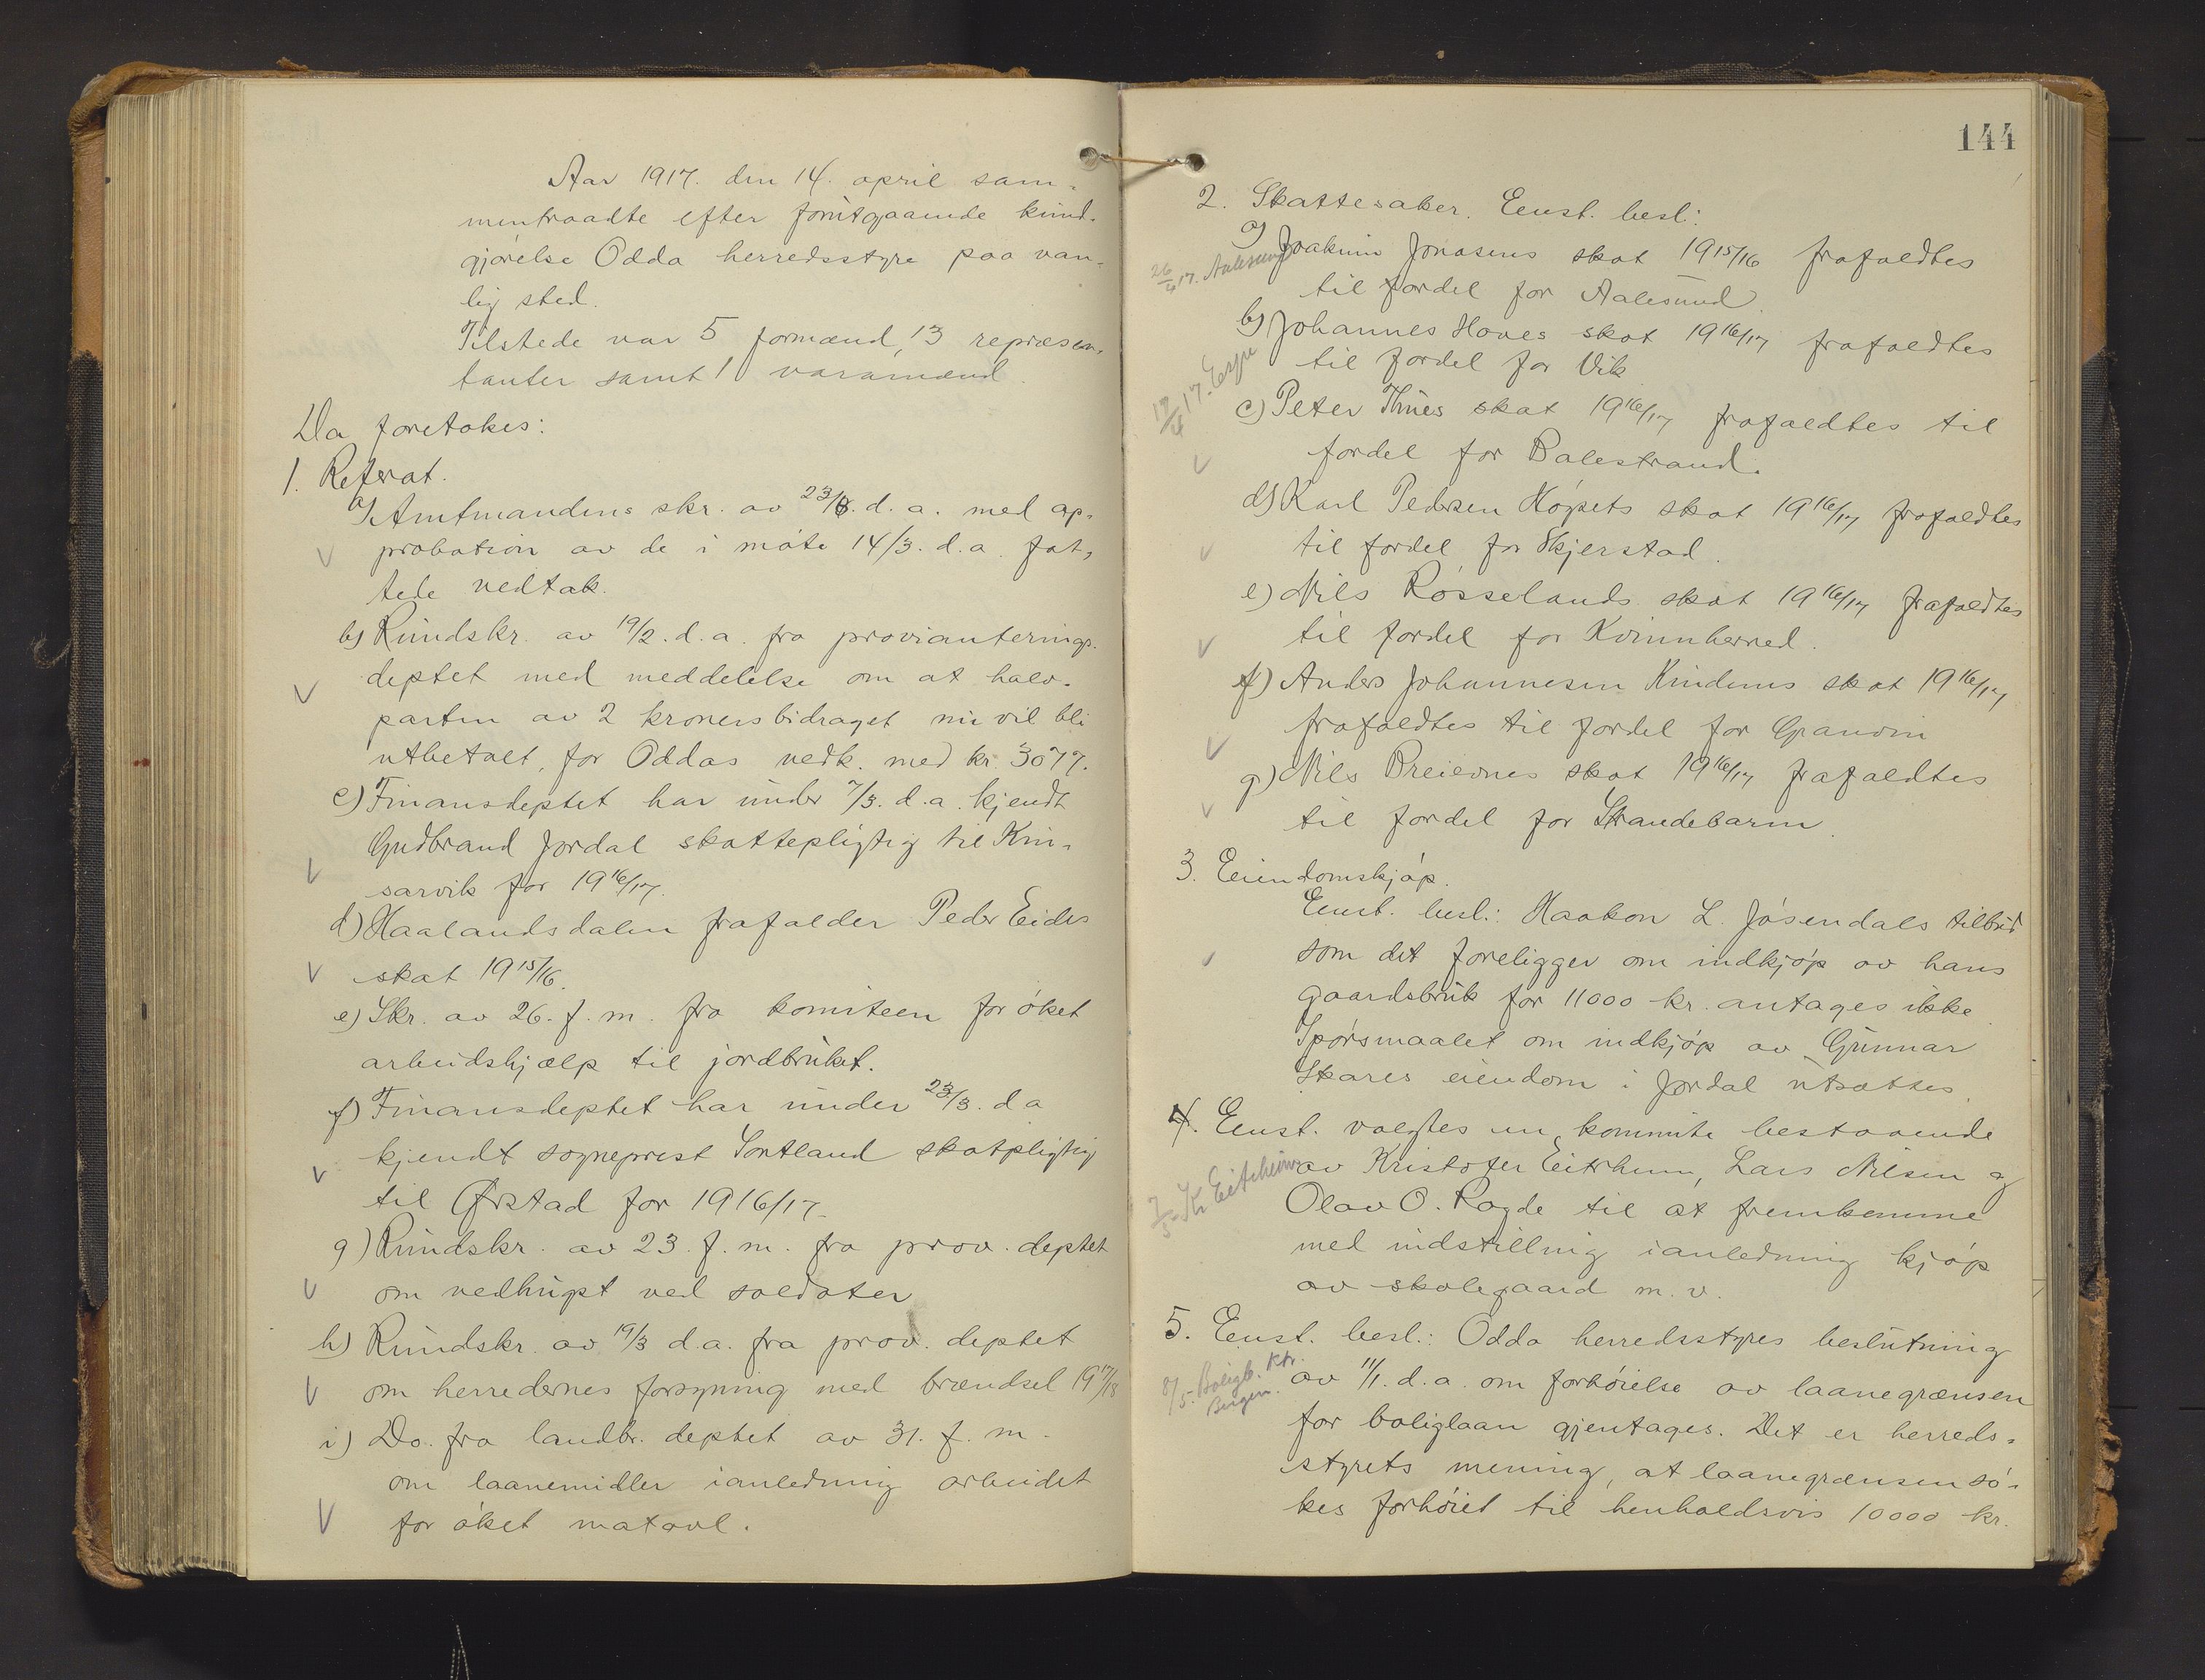 Aar 1917. den 14. april sam-
mentraadte efter forutgaaende kund-
gjørelse Odda herredsstyre paa van-
lig sted.
Tilstede var 5 formænd, 13 repræsen-
tanter samt 1 varamænd.
Da foretokes:
1. Referat.
a) Amtmandens skr. av 23/3. d. a. med ap-
probation av de i møte 14/3. d. a. fat-
tede vedtak.
b) Rundskr. av 19/2. d. a. fra provianterings-
deptet med meddelelse om at halv-
parten av 2 kronersbidraget nu vil bli
utbetalt, for Oddas vedk. med kr. 3077.
c) Finansdeptet har under 7/3. d. a. kjendt
Gudbrand Jordal skattepligtig til Kin-
sarvik for 1916/17.
d) Haalandsdalen frafalder Peder Eides
skat 1915/16.
e) Skr. av 26. f. m. fra komiteen for øket
arbeidshjælp til jordbruket.
f) Finansdeptet har under 23/3. d a
kjendt sogneprest Sortland skatpligtig
til Ørstad for 1916/17.
g) Rundskr. av 23. f. m. fra prov. deptet
om vedhugst ved soldater
h) Rundskr. av 19/3 d. a. fra prov. deptet
om herredernes forsyning med brændsel 1917/18
i) Do. fra landbr. deptet av 31. f. m.
om laanemidler ianledning arbeidet
for øket matavl.
144
2. Skattesaker. Eenst. besl:
a) Joakim Jonasens skat 1915/16 frafaldtes
26/4 17. Aalesund
til fordel for Aalesund.
b) Johannes Hoves skat 1916/17 frafaldtes
til fordel for Vik
19/4 17.
c) Peter Thues skat 1916/17 frafaldtes til
fordel for Balestrand.
d) Karl Pedersen Høysets skat 1916/17 frafaldtes
til fordel for Skjerstad.
e) Nils Røsselands skat 1916/17 frafaldtes
til fordel for Kvinnherred.
f) Anders Johannesen Kindems skat 1916/17
frafaldtes til fordel for Granvin
g) Nils Breievnes skat 1916/17 frafaldtes
til fordel for Strandebarm.
3. Eiendomskjøp.
Eenst. besl.: Haakon L. Jøsendals tilbud
som det foreligger om indkjøp av hans
gaardsbruk for 11000 kr. antages ikke.
Spørsmaalet om indkjøp av Gunnar
Skares eiendom i Jordal utsættes.
4. Eenst. valgtes en kommite bestaaende
av Kristofer Eitrheim, Lars Nilsen og
7/5. Kr Eitrheim
Olav O. Ragde til at fremkomme
med indstilling ianledning kjøp
av skolegaard m. v.
5. Eenst. besl.: Odda herredsstyres beslutning
8/5. Boligb. ktr.
Bergen.
av 11/1. d. a. om forhøielse av laanegrænsen
for boliglaan gjentages. Det er herreds-
styrets mening, at laanegrænsen sø-
kes forhøiet til henholdsvis 10000 kr.